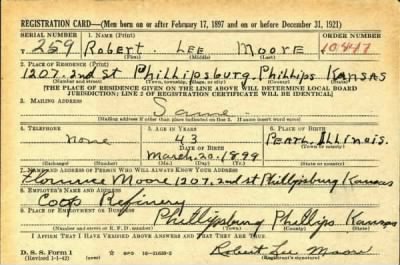 REGISTRATION CARD—(Men born on or after February 17, 1897 and on or before December 31, 1921)
SERIAL NUMBER 1. NAME (Print) ORDER NUMBER
T 259 Robert Lee Moore 10441
(First) (Middle) (Last)
2. PLACE OF RESIDENCE (Print)
1207 2nd St Phillipsburg Phillips Kansas
(Number and street) (Town, township, village, or city) (County) (State)
[THE PLACE OF RESIDENCE GIVEN ON THE LINE ABOVE WILL DETERMINE LOCAL BOARD
JURISDICTION; LINE 2 OF REGISTRATION CERTIFICATE WILL BE IDENTICAL]
3. MAILING ADDRESS
Same
[Mailing address if other than place indicated on line 2. If same insert word same]
4. TELEPHONE 5. AGE IN YEARS 6. PLACE OF BIRTH
none 43
DATE OF BIRTH (Town or county)
March 20 1899 Illinois
(Exchange) (Number) (Mo.) (Day) (Yr.) (State or country)
7. NAME AND ADDRESS OF PERSON WHO WILL ALWAYS KNOW YOUR ADDRESS
Florence Moore 1207 2nd st Phillipsburg Kansas
8. EMPLOYER'S NAME AND ADDRESS
Coop Refinery
9. PLACE OF EMPLOYMENT OR BUSINESS
Phillipsburg Phillips Kansas
(Number and street or R. F. D. number) (Town) (County) (State)
I AFFIRM THAT I HAVE VERIFIED ABOVE ANSWERS AND THAT THEY ARE TRUE.
D. S. S. Form 1
(Revised 1-1-42) (over) GPO 16—21630-2
Robert Lee Moore